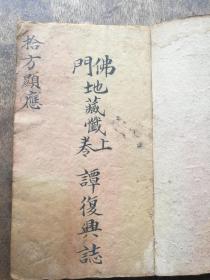 佛門地藏懺上卷
譚復興誌
拾方顯應